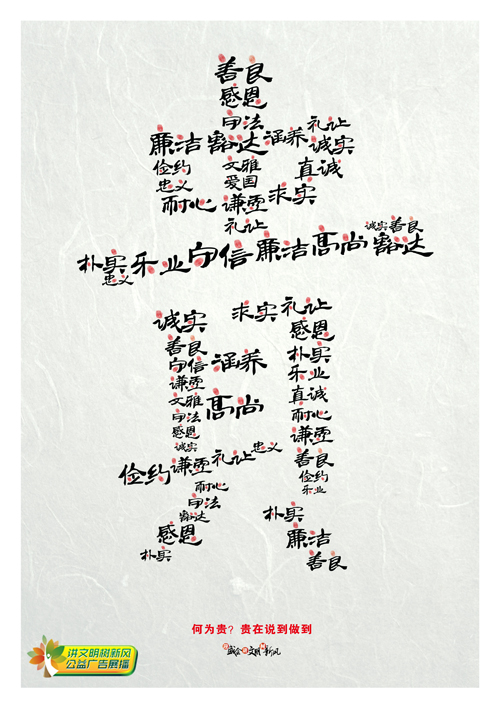 善良
感恩
守法
礼让
廉洁 豁达 涵养 诚实
俭约 文雅 真诚
忠义 爱国 求实
耐心 谦恭
礼让
诚实 善良
朴实 乐业 守信 廉洁 高尚 豁达
忠义
诚实 求实 礼让
感恩
善良 朴实
守信 涵养 乐业
谦恭 真诚
文雅 高尚 耐心
守法
感恩 谦恭
诚实
俭约 谦恭 礼让 忠义 善良
俭约
耐心 乐业
守法
豁达 朴实
感恩 廉洁
朴实 善良
何为贵？贵在说到做到
讲文明树新风
公益广告展播